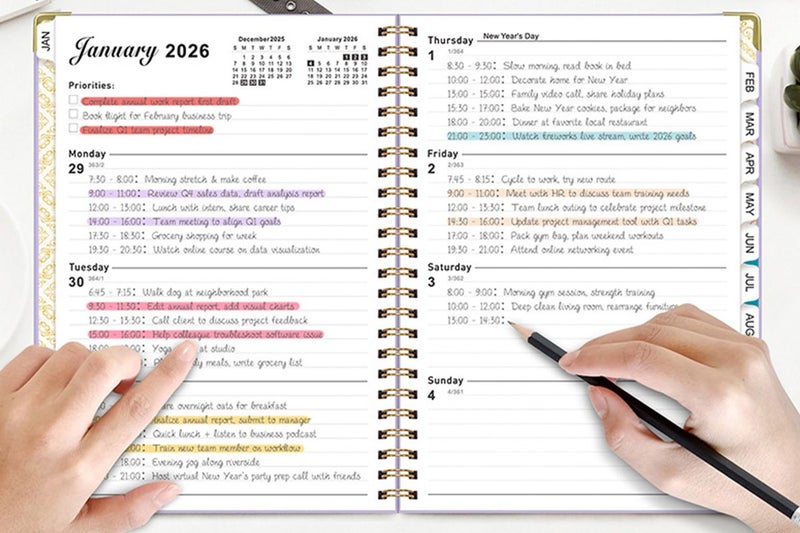 JAN
January 2026
December2025
S M T W T F S
1 2 3 4 5 6
7 8 9 10 11 12 13
14 15 16 17 18 19 20
21 22 23 24 25 26 27
28 29 30 31
January 2026
S M T W T F S
1 2 3
4 5 6 7 8 9 10
11 12 13 14 15 16 17
18 19 20 21 22 23 24
25 26 27 28 29 30 31
Priorities:
Complete annual work report first draft
Book flight for February business trip
Finalize Q1 team project timeline
Monday
29 363/2
7:30 - 8:00: Morning stretch & make coffee
9:00 - 11:00: Review Q4 sales data, draft analysis report
12:00 - 13:00: Lunch with intern, share career tips
14:00 - 16:00: Team meeting to align Q1 goals
17:30 - 18:30: Grocery shopping for week
19:30 - 20:30: Watch online course on data visualization
Tuesday
30 364/1
6:45 - 7:15: Walk dog at neighborhood park
9:30 - 11:30: Edit annual report, add visual charts
12:30 - 13:30: Call client to discuss project feedback
15:00 - 16:00: Help colleague troubleshoot software issue
18:00 Yoga at studio
meals, write grocery list
overnight oats for breakfast
annual report, submit to manager
Quick lunch + listen to business podcast
Train new team member on workflow
18:00: Evening jog along riverside
21:00: Host virtual New Year's party prep call with friends
Thursday New Year's Day
1 1/364
8:30 - 9:30: Slow morning, read book in bed
10:00 - 12:00: Decorate home for New Year
13:00 - 15:00: Family video call, share holiday plans
15:30 - 17:30: Bake New Year cookies, package for neighbors
18:00 - 20:00: Dinner at favorite local restaurant
21:00 - 23:00: Watch fireworks live stream, write 2026 goals
Friday
2 2/363
7:45 - 8:15: Cycle to work, try new route
9:00 - 11:00: Meet with HR to discuss team training needs
12:30 - 13:30: Team lunch outing to celebrate project milestone
14:30 - 16:00: Update project management tool with Q1 tasks
17:00 - 18:00: Pack gym bag, plan weekend workouts
19:30 - 21:00: Attend online networking event
Saturday
3 3/362
8:00 - 9:00: Morning gym session, strength training
10:00 - 12:00: Deep clean living room, rearrange furniture
13:00 - 14:30:
Sunday
4 4/361
FEB
MAR
APR
MAY
JUN
JUL
AUG